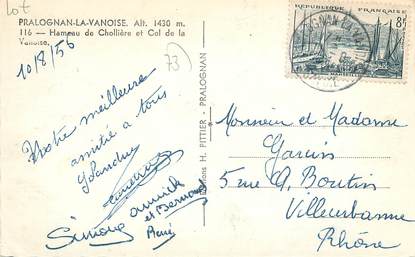 Lot
PRALOGNAN-LA-VANOISE. Alt. 1430 m.
116 — Hameau de Chollière et Col de la
Vanoise.
10/8/56
73)
Notre meilleure
amitié a tous
Yolande
Simone
annick
et Bernard
René
Editions H. PITTIER - PRALOGNAN
RÉPUBLIQUE FRANÇAISE
8F
Monsieur et Madame
Garcin
5 rue A. Boutin
Villeurbanne
Rhône